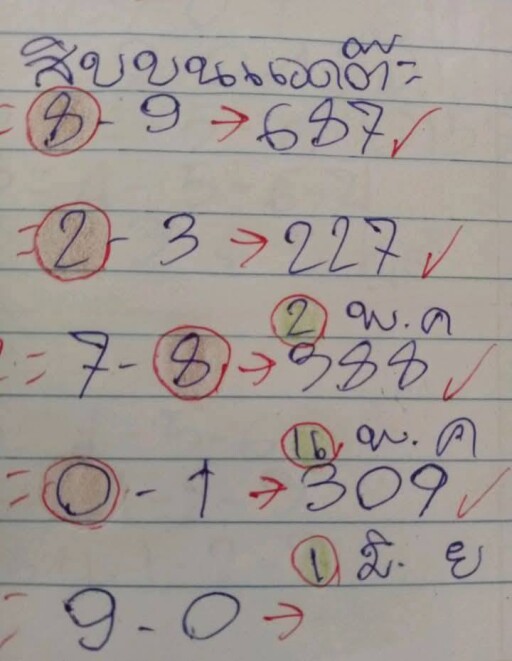 สิบบนแอดต๊ะ
= 8 - 9 → 687 ✓
= 2 - 3 → 227 ✓
2 พ.ค
= 7 - 8 → 388 ✓
16 พ.ค
= 0 - 1 → 309 ✓
1 มิ.ย
= 9 - 0 →